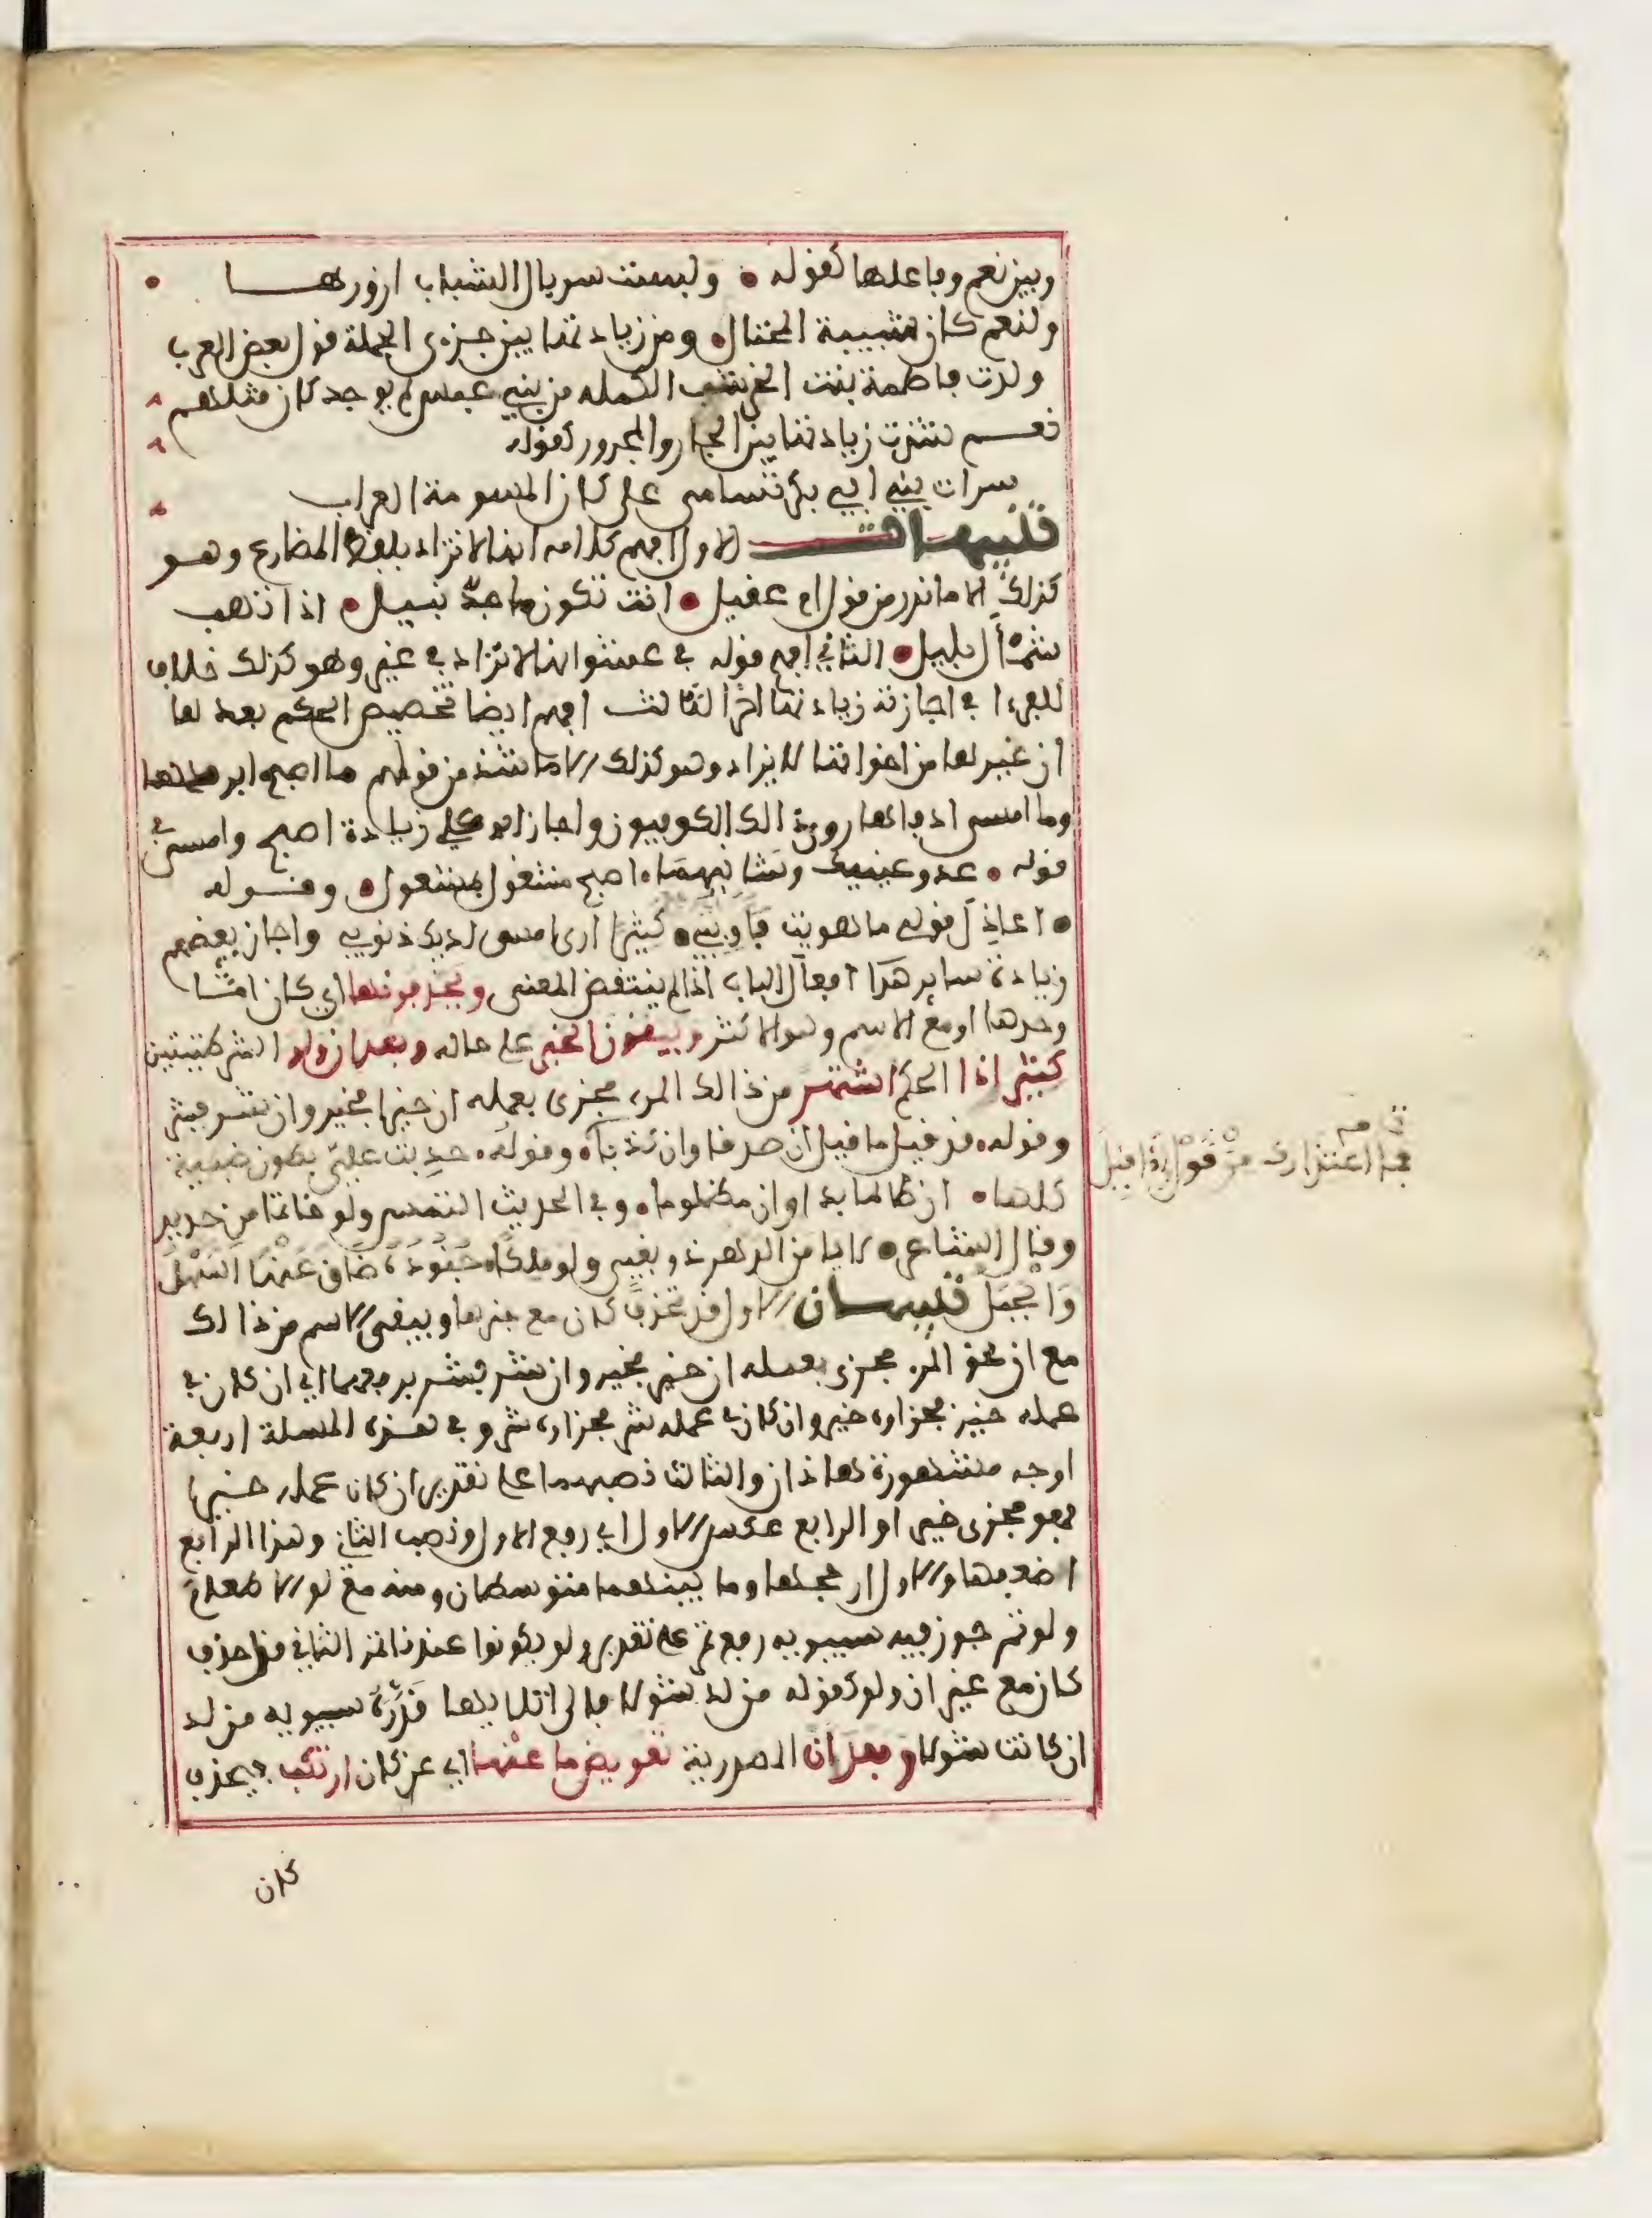 وبين نعم وفاعلها كقوله • ولبست سربال الشباب ازورهـــا •
ولنعم كان شبيبة المحتال • ومن زيادتها بين جزءي الجملة قول بعض العرب
ولدت فاطمة بنت الخرشب الكملة من بني عبس لم يوجد كان مثلهم
نعــم شذت زيادتها بين الجار والمجرور كقوله
سرات بني ابي بكر تسامى على كان المسومة العراب
تنبيهـات الاول افهم كلامه انها لا تزاد بلفظ المضارع وهــو
كذلك الا ما ندر من قول ام عقيل • انت تكون ماجد نبيل • اذا تهب
شمأل بليل • الثاني افهم قوله في حشو انها لا تزاد في غيره وهو كذلك خلاف
للفراء في اجازته زيادتها اخرا الثالث افهم ايضا تخصيص الحكم بها
ان غيرها من اخواتها لا يزاد وهو كذلك الا ما شذ من قولهم ما اصبح ابردها
وما امسى ادفاها روى ذالك الكوفيون واجاز ابو علي زيادة اصبح وامسى في
قوله • عدو عينيك وشانيهما • اصبح مشغول بمشغول • وقــوله
• اعاذل قولي ما هويت فاوبي • كثيرا ارى امسى لديك ذنوبي واجاز بعضهم
زيادة ساير هذا افعال الباب اذا لم ينتقض المعنى ويحذفونها اي كان امــا
وحدها او مع الاسم وهو الاكثر ويبقون الخبر على حاله وبعد ان ولو الشرطيتين
كثيرا ذا الحكم اشتهر من ذالك المرء مجزى بعمله ان خيرا فخير وان شر فشر
وقوله • قد قيل ما قيل ان صدقا وان كذبا • وقوله • حدبت علي بطون ضبة
كلها • ان ظالما بدا وان مظلوما • وفي الحديث التمس ولو خاتما من حديد
وقال الشاعر • لا يامن الدهر ذو بغي ولو ملكا • جنوده ضاق عنها السهل
والجبل تنبيهــان الاول قد تحذف كان مع خبرها ويبقى الاسم من ذالك
مع ان نحو المرء مجزى بعمله ان خير فخير وان شر فشر برفعهما اي ان كان في
عمله خير فجزاؤه خير وان كان في عمله شر فجزاؤه شر وفي هذه المسلة اربعة
اوجه مشهورة هاذان والثالث نصبهما على تقدير ان كان عمله خيرا
فهو مجزى خيرا والرابع عكس الاول اي رفع الاول ونصب الثاني وهذا الرابع
اضعفها والاول ارجحها وما بينهما متوسطان ومنه مع لو الا طعام
ولو تمر جوز فيه سيبويه رفع تمر على تقدير ولو يكون عندنا تمر الثاني قل حذف
كان مع غير ان ولو كقوله من لد شولا فالى اتلائها قدره سيبويه من لد
ان كانت شولا وبعد ان المصدرية تعويض ما عنها اي عن كان ارتكب فيحذف
كان
تمامه
فما اعتذارك من قول اذا قيل